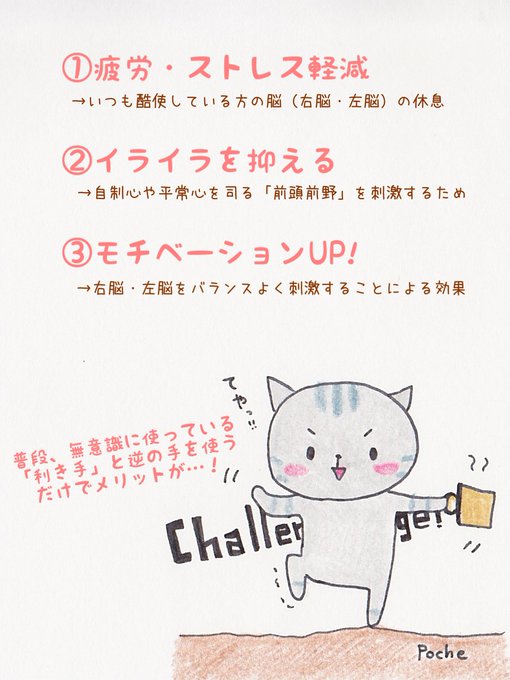 ①疲労・ストレス軽減
→いつも酷使している方の脳（右脳・左脳）の休息
②イライラを抑える
→自制心や平常心を司る「前頭前野」を刺激するため
③モチベーションUP!
→右脳・左脳をバランスよく刺激することによる効果
てやっ!!
普段、無意識に使っている
「利き手」と逆の手を使う
だけでメリットが…！
Challenge!
Poche